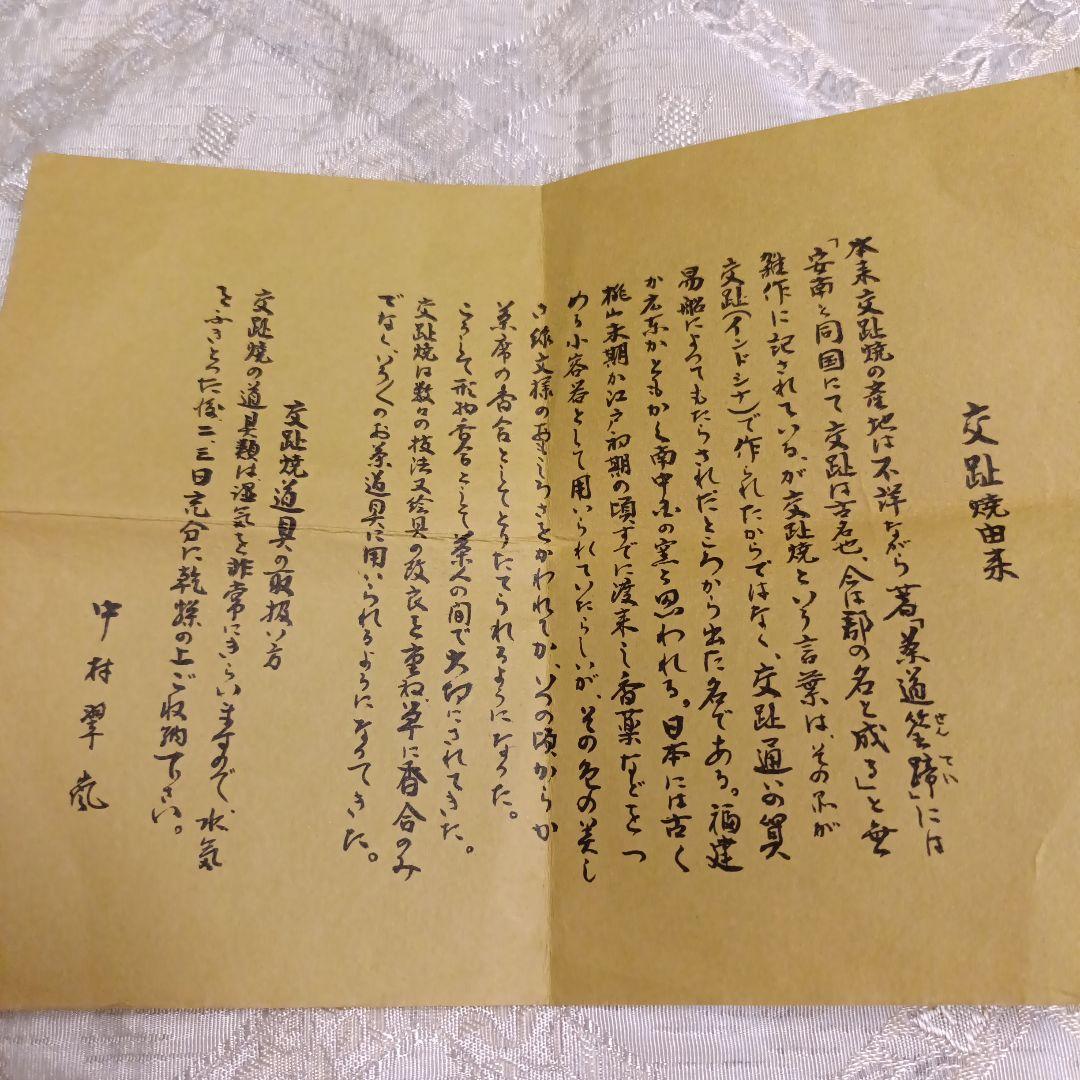 交趾焼由来
本来交趾焼の産地は不詳ながら著「茶道筌蹄」には
せんてい
「安南と同国にて交趾は古名也、今は郡の名と成る」と無
雑作に記されている、が交趾焼という言葉は、その品が
交趾(インドシナ)で作られたからではなく、交趾通いの貿
易船によってもたらされたところから出た名である。福建
か広東かともかく南中国の窯と思われる。日本には古く
桃山末期か江戸初期の頃すでに渡来し香薬などをつ
める小容器として用いられていたらしいが、その色の美し
さ線文様のおもしろさをかわれてか、いつの頃からか
茶席の香合としてとりたてられるようになった。
こうして形物香合として茶人の間で大切にされてきた。
交趾焼は数々の技法又絵具の改良を重ね、単に香合のみ
でなく、いろくのお茶道具に用いられるようになってきた。
交趾焼道具の取扱い方
交趾焼の道具類は湿気を非常にきらいますので、水気
をふきとった後二、三日充分に乾燥の上ご収納下さい。
中村翠嵐